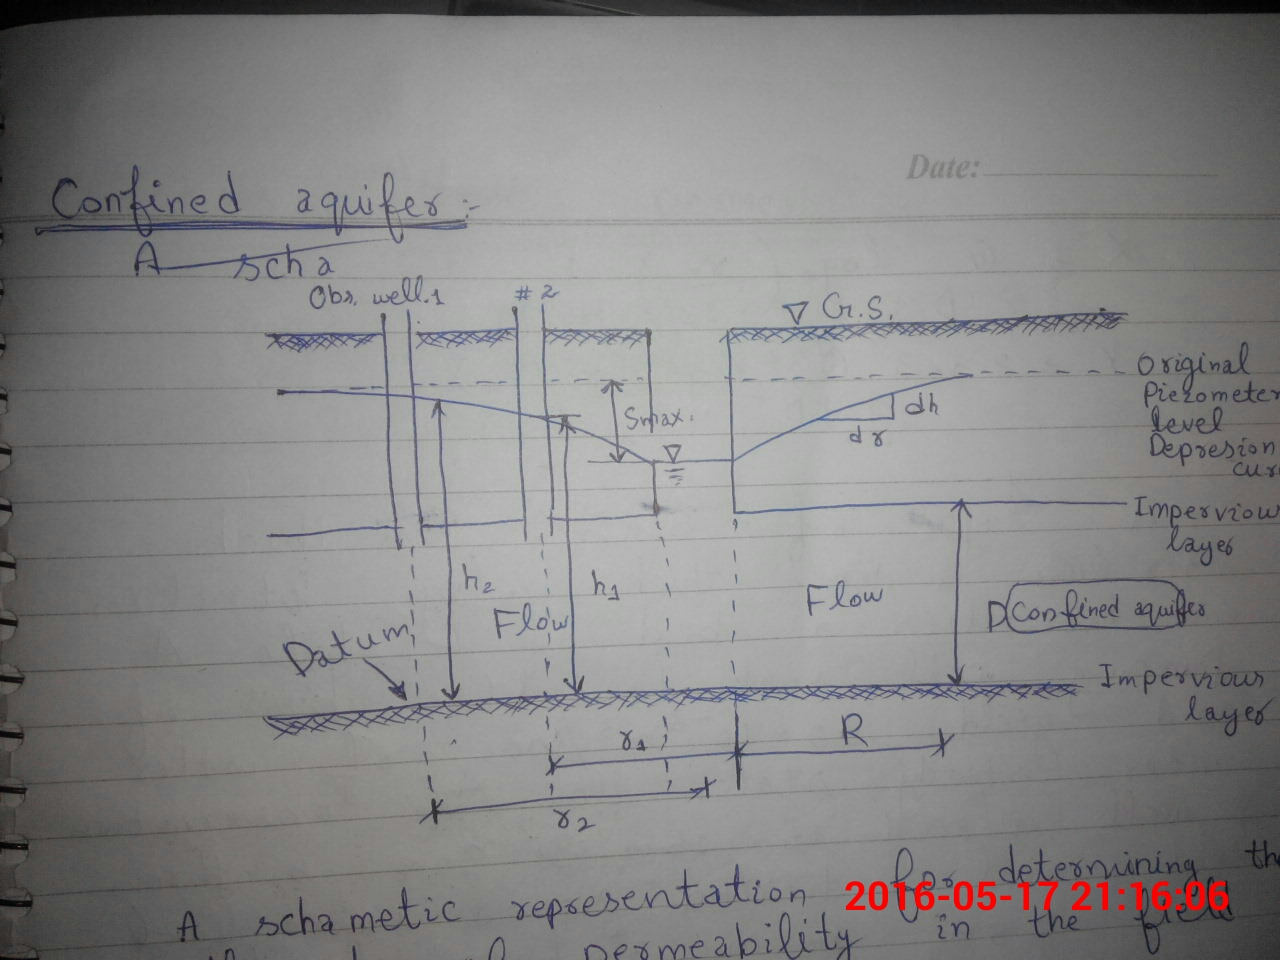 Date:
Confined aquifer:-
A scha
Obs. well.1
# 2
G.S.
Original
Piezometer
level
Depresion
Smax.
dh
dr
Impervious
layer
h2
h1
Flow
Flow
D Confined aquifer
Datum
Impervious
layer
r1
R
r2
A schametic representation for determining the
2016-05-17 21:16:06
permeability in the field